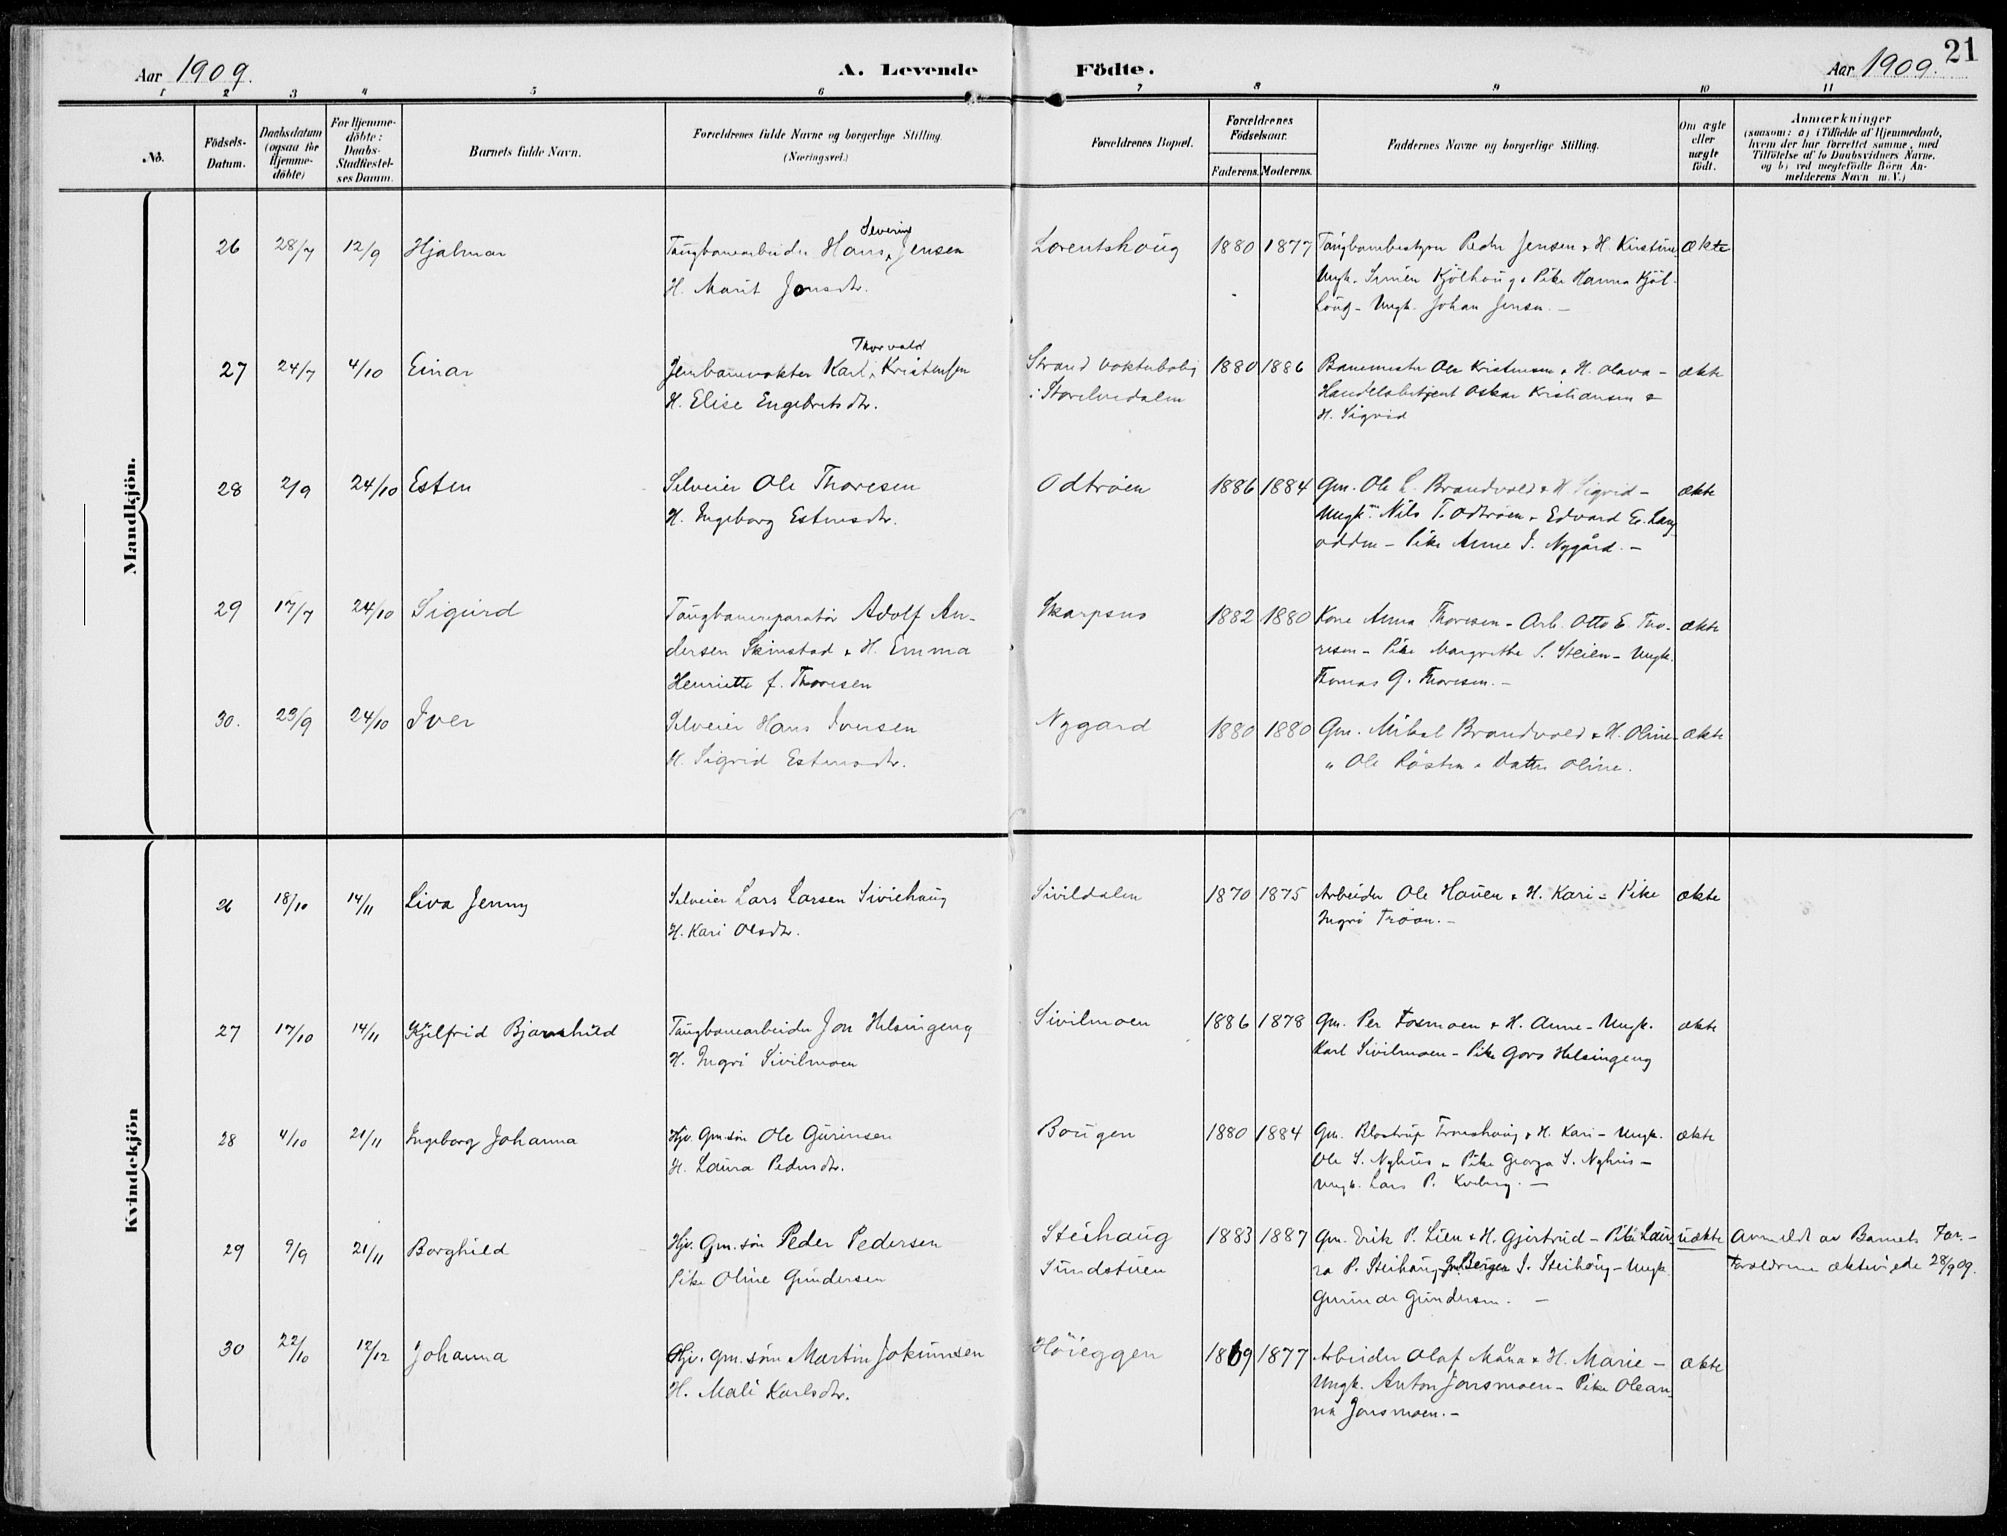 21
Aar 1909.
A. Levende
Födte.
Aar 1909.
1 2 3 4 5 6 7 8 9 10 11
No.
Födsels-Datum.
Daabsdatum (ogsaa for Hjemme-döbte)
For Hjemme-döbte: Daabs-Stadfæstel-ses Datum.
Barnets fulde Navn.
Forældrenes fulde Navne og borgerlige Stilling.
(Næringsvei.)
Forældrenes Bopæl.
Forældrenes Födselsaar.
Faderens. Moderens.
Faddernes Navne og borgerlige Stilling.
Om ægte eller uægte födt.
Anmærkninger
(saasom: a) i Tilfælde af Hjemmedaab, hvem der har forrettet samme, med Tilföielse af to Daabsvidners Navne, og b) ved uægtefödte Börn An-melderens Navn m. V.)
Mandkjön.
26 28/7 12/9 Hjalmar
Severin
Taugbanearbeider Hans Jensen
H. Marit Jonsdtr.
Lorentshoug 1880 1877
Taugbanebestyrer Peder Jensen & H. Kristine
Ungk. Simen Kjölhoug & Pike Hanna Kjöl-
houg - Ungk. Johan Jensen. -
ækte
27 24/7 4/10 Einar
Thorvald
Jernbanevokter Karl Kristensen
H. Elise Engebretsdtr.
Strand vokterbolig
i Storelvedalen
1880 1886
Banemester Ole Kristensen & H. Olava -
Handelsbetjent Oskar Kristiansen &
H. Sigrid
ækte
28 2/9 24/10 Esten
Selveier Ole Thoresen
H. Ingeborg Estensdtr.
Odtröen 1886 1884
Gm. Ole L. Brandvold & H Sigrid -
Ungk. Nils T. Odtröen & Edvard E. Lang-
odden - Pike Anne I. Nygård. -
ækte
29 17/7 24/10 Sigurd
Taugbanereparatör Adolf An-
dersen Skinstad & H. Emma
Henriette f. Thoresen
Skarpsno 1882 1880
Kone Anna Thoresen - Arb. Otto E. Tho-
resen - Pike Margrethe S. Steien - Ungk.
Thomas G. Thoresen. -
ækte
30. 23/9 24/10 Iver
Selveier Hans Iversen
H. Sigrid Estensdtr.
Nygard 1880 1880
Gm. Mikal Brandvold & H. Oline -
" Ole Rösten & Datter Oline.
ækte
Kvindekjön
26 18/10 14/11 Liva Jenny
Selveier Lars Larsen Siviehaug
H. Kari Olsdtr.
Sivildalen 1870 1875
Arbeider Ole Hauen & H. Kari - Pike
Ingri Tröan. -
ækte
27 17/10 14/11 Kjelfrid Bjarnhild
Taugbanearbeider Jon Helsingeng
H. Ingri Sivilmoen
Sivilmoen 1886 1878
Gm. Per Fosmoen & H. Anne - Ungk.
Karl Sivilmoen - Pike Goro Helsingeng
ækte
28 4/10 21/11 Ingeborg Johanna
Hjv. Gm.sön Ole Gurinsen
H. Laura Pedersdtr.
Bougen 1880 1884
Gm. Tronshoug & H. Kari - Ungk.
Ole S. Nyhus & Pike Georga S. Nyhus -
Ungk. Lars P. Kveberg. -
ækte
29 9/9 21/11 Borghild
Hjv. Gm.sön Peder Pedersen
Pike Oline Gundersen
Steihaug
Sundstuen
1883 1887
Gm. Erik P. Lien & H. Gjertrud - Pike Lau-
ra P. Steihaug Gm. Berger I. Steihoug - Ungk.
Gunnar Gundersen. -
uækte
Anmeldt av Barnets Far. -
Foreldrene ækteviede 28/9 09.
30 22/10 12/12 Johanna
Hjv. Gm.sön Martin Jokumsen
H. Mali Karlsdtr.
Höieggen 1869 1877
Arbeider Olaf Måna & H. Marie -
Ungk. Anton Jonsmoen - Pike Olean-
na Jonsmoen. -
ækte